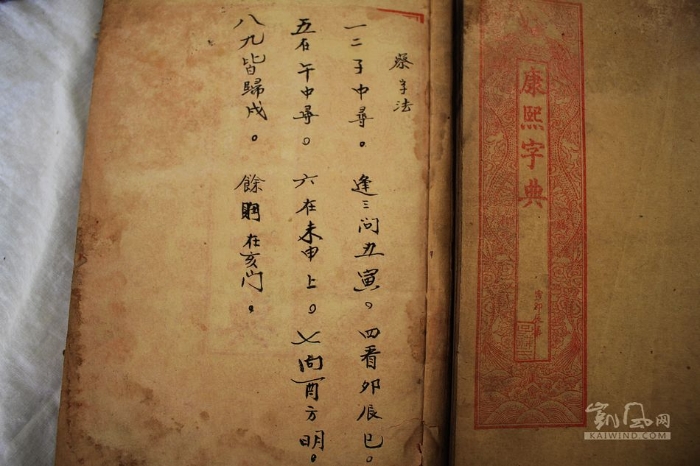 蔡字法
一二子中尋。逢三问丑寅。四看卯辰巳。
五在午中尋。六在未申上。七问酉方明。
八九皆歸戌。餘則在亥门。
康熙字典
凱风网
KAIWIND.COM